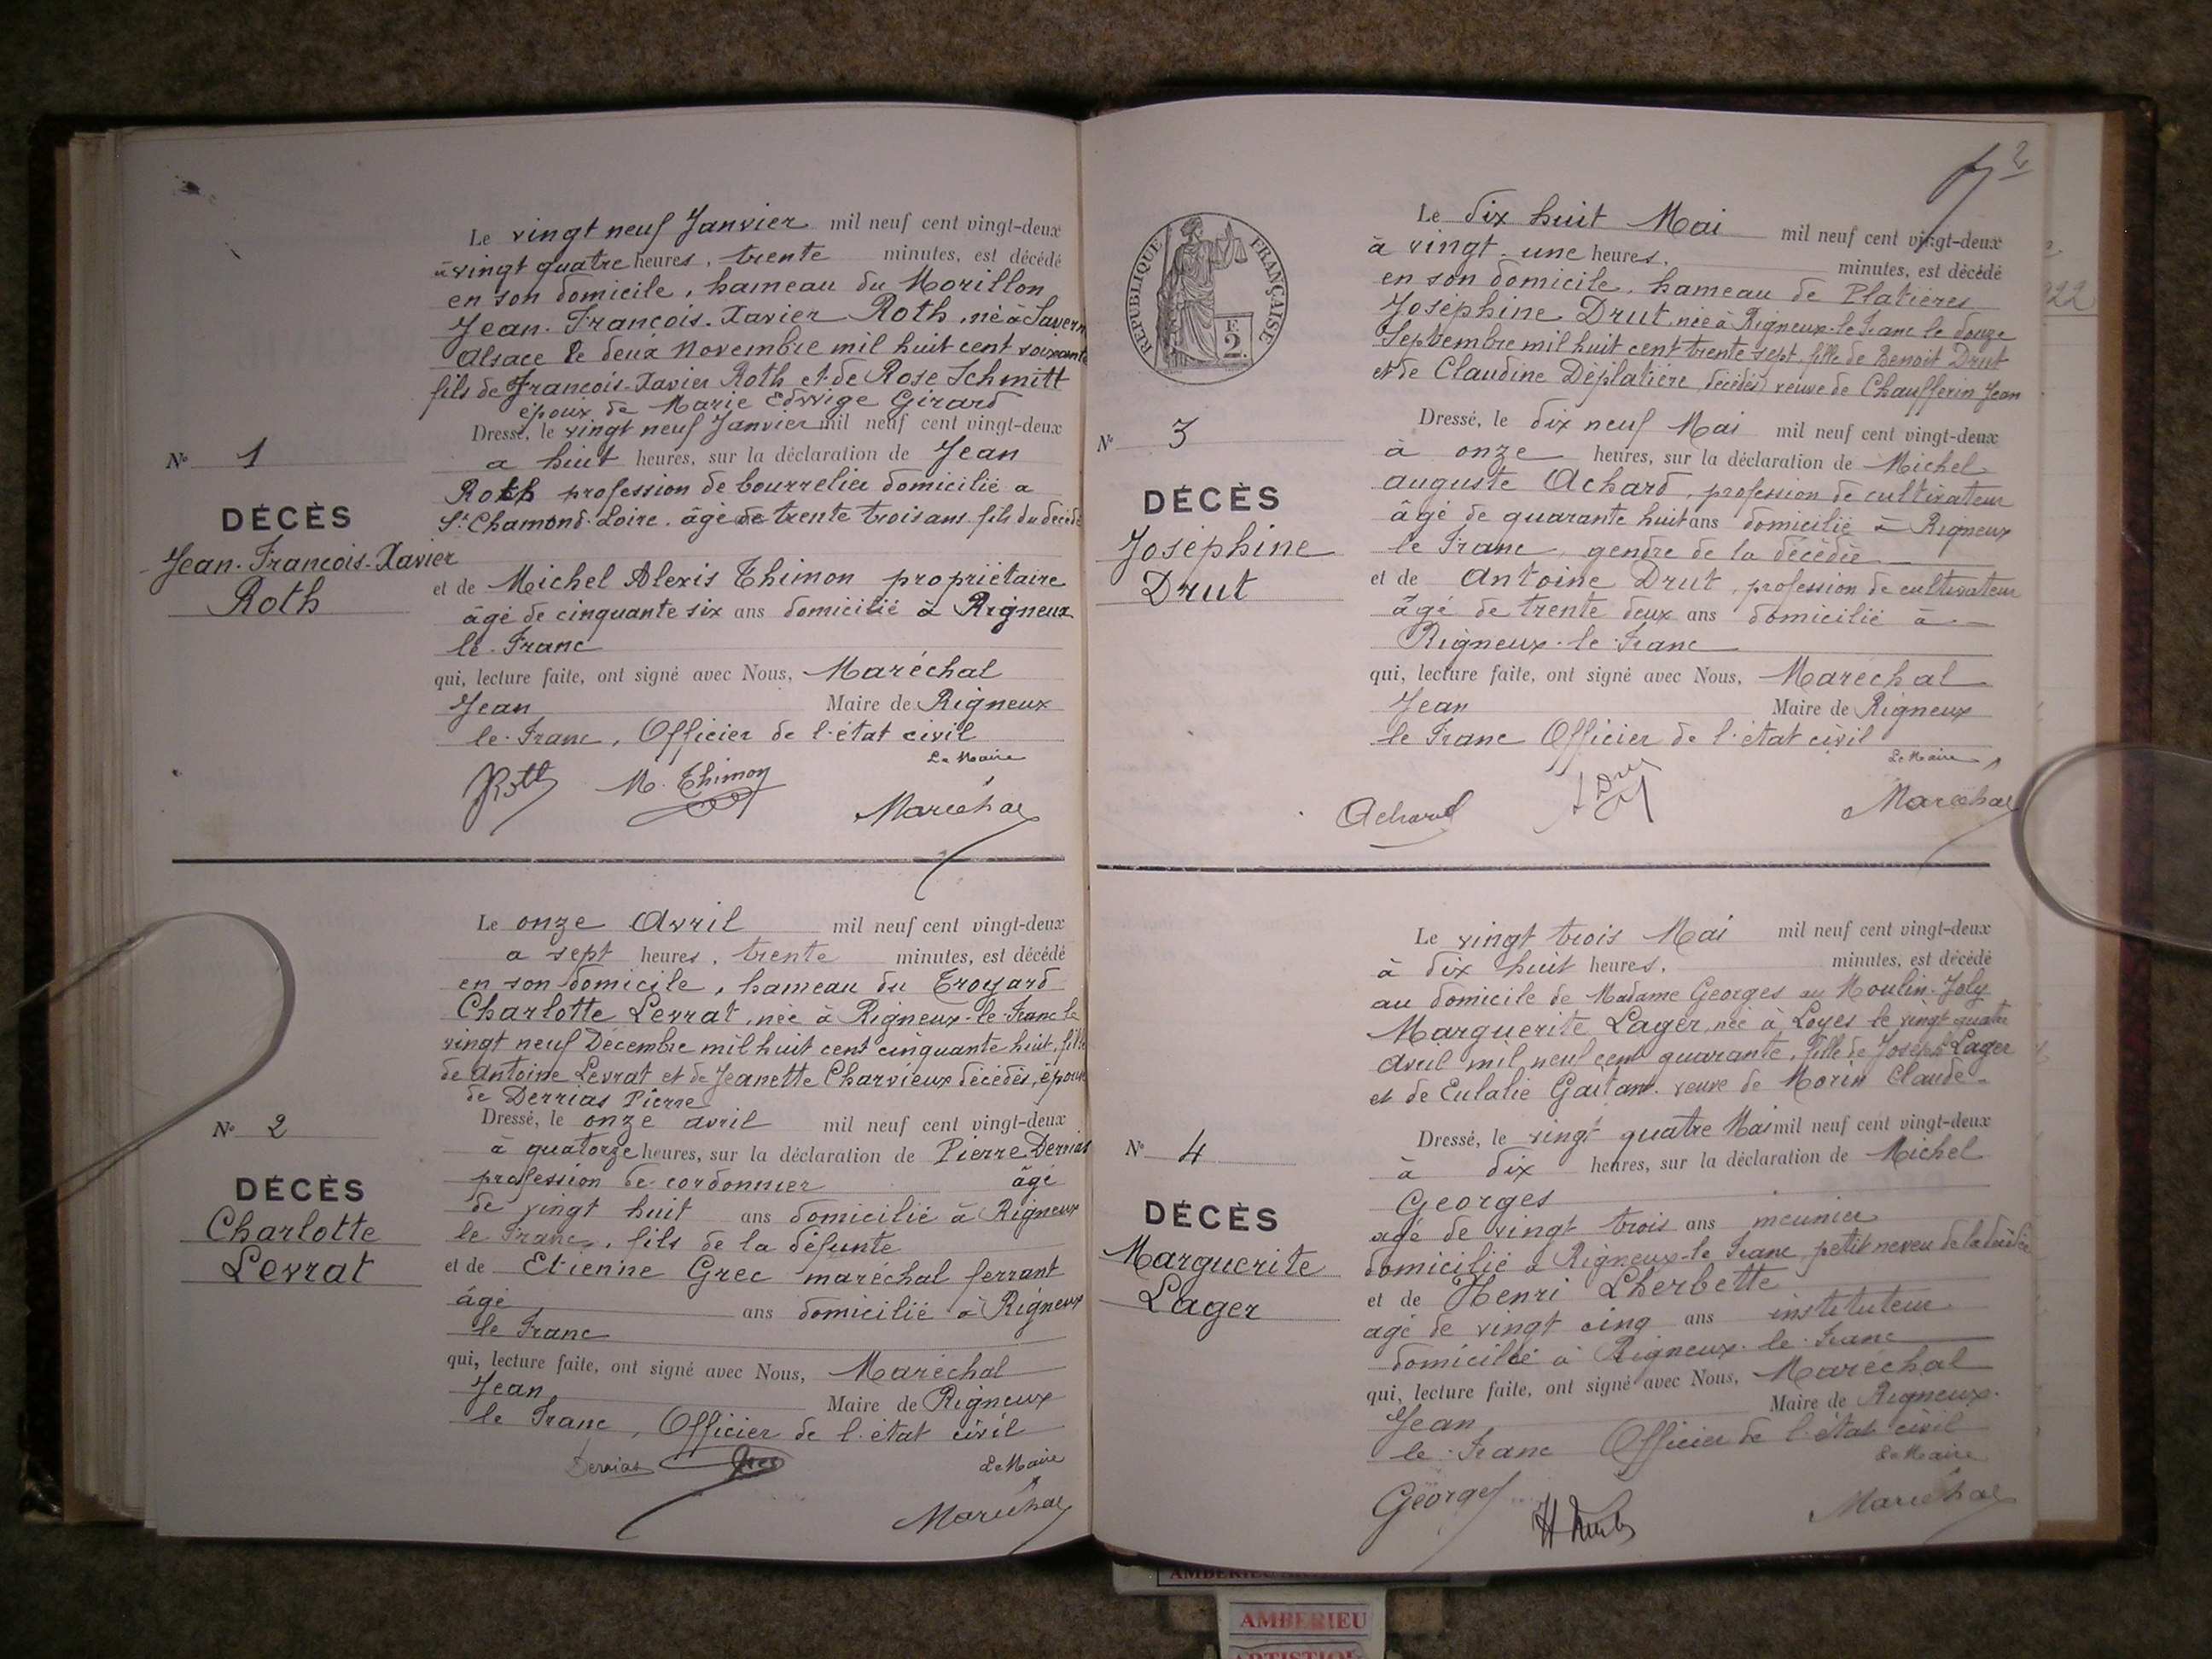 Le vingt neuf Janvier mil neuf cent vingt-deux
à vingt quatre heures, trente minutes, est décédé
en son domicile, hameau du Morillon
Jean-François-Xavier Roth, né à Savern
Alsace le deux Novembre mil huit cent soixante
fils de François-Xavier Roth et de Rose Schmitt
époux de Marie Edwige Girard
Dressé, le vingt neuf Janvier mil neuf cent vingt-deux
a huit heures, sur la déclaration de Jean
Roth profession de bourrelier domicilié a
St Chamond-Loire. âgé de trente trois ans fils du décédé
et de Michel Alexis Thimon propriétaire
âgé de cinquante six ans domicilié à Rigneux
le-Franc
qui, lecture faite, ont signé avec Nous, Maréchal
Jean Maire de Rigneux
le-Franc, Officier de l'état civil
Le Maire
JRoth M. Thimon
Maréchal
No 1
DÉCÈS
Jean-François-Xavier
Roth
Le onze Avril mil neuf cent vingt-deux
a sept heures, trente minutes, est décédé
en son domicile, hameau du Troyard
Charlotte Levrat, née à Rigneux-le-Franc le
vingt neuf Décembre mil huit cent cinquante huit, fille
de Antoine Levrat et de Jeanette Charvieux décédés, épouse
de Derrias Pierre
Dressé, le onze avril mil neuf cent vingt-deux
à quatorze heures, sur la déclaration de Pierre Derrias
profession de cordonnier âgé
de vingt huit ans domicilié à Rigneux
le Franc, fils de la défunte
et de Etienne Grec maréchal ferrant
âgé ans domicilié à Rigneux
le Franc
qui, lecture faite, ont signé avec Nous, Maréchal
Jean Maire de Rigneux
le Franc, Officier de l'état civil
Derrias Grec Le Maire
Maréchal
No 2
DÉCÈS
Charlotte
Levrat
2
RÉPUBLIQUE FRANÇAISE
F.
2.
Le dix huit Mai mil neuf cent vingt-deux
à vingt-une heures, minutes, est décédé
en son domicile, hameau de Platières
Joséphine Drut, née à Rigneux-le-Franc le douze
Septembre mil huit cent trente sept, fille de Benoit Drut
et de Claudine Déplatière, décédés, veuve de Chaufferin Jean
Dressé, le dix neuf Mai mil neuf cent vingt-deux
à onze heures, sur la déclaration de Michel
Auguste Achard, profession de cultivateur
âgé de quarante huit ans domicilié à Rigneux
le Franc, gendre de la décédée
et de Antoine Drut, profession de cultivateur
âgé de trente deux ans domicilié à
Rigneux-le-Franc
qui, lecture faite, ont signé avec Nous, Maréchal
Jean Maire de Rigneux
le Franc Officier de l'état civil
Le Maire
Achard
Maréchal
No 3
DÉCÈS
Joséphine
Drut
Le vingt trois Mai mil neuf cent vingt-deux
à dix huit heures, minutes, est décédé
au domicile de Madame Georges au Moulin-Joly
Marguerite Lager, née à Loyes le vingt-quatre
Avril mil neuf cent quarante, fille de Joseph Lager
et de Eulalie Gaitant veuve de Morin Claude
Dressé, le vingt quatre Mai mil neuf cent vingt-deux
à dix heures, sur la déclaration de Michel
Georges
agé de vingt trois ans meunier
domicilié à Rigneux-le Franc, petit neveu de la décédée
et de Henri Lherbette
agé de vingt cinq ans instituteur
domicilié à Rigneux-le-Franc
qui, lecture faite, ont signé avec Nous, Maréchal
Jean Maire de Rigneux
le-Franc Officier de l'état civil
Le Maire
Georges
Maréchal
No 4
DÉCÈS
Marguerite
Lager
22
AMBERIEU